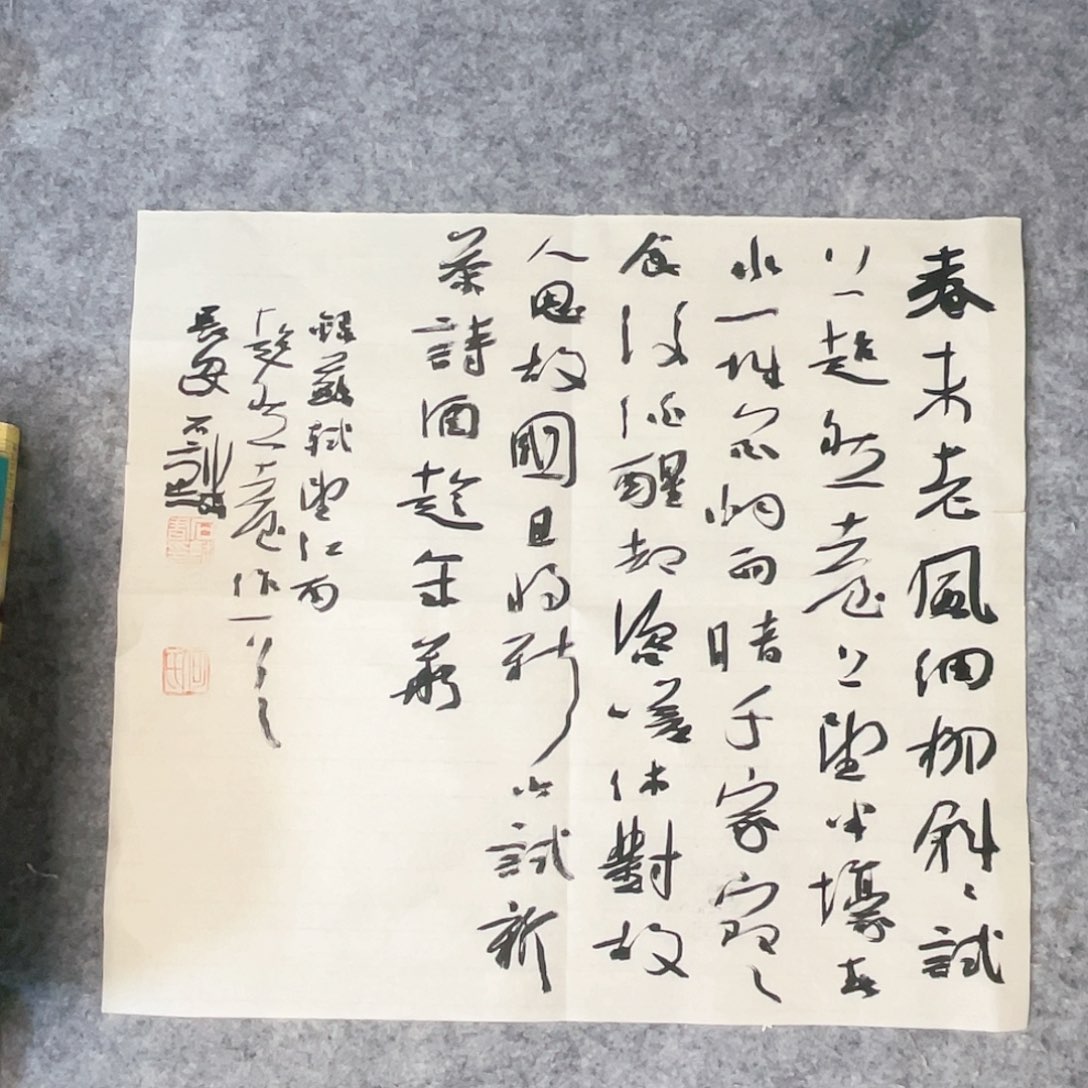 春未老風細柳斜々試
上超然臺上望半壕春
水一城花烟雨暗千家寒
食後酒醒却咨嗟休對故
人思故國且將新火試新
茶詩酒趁年華
錄蘇軾望江南
超然臺作一首
長安石